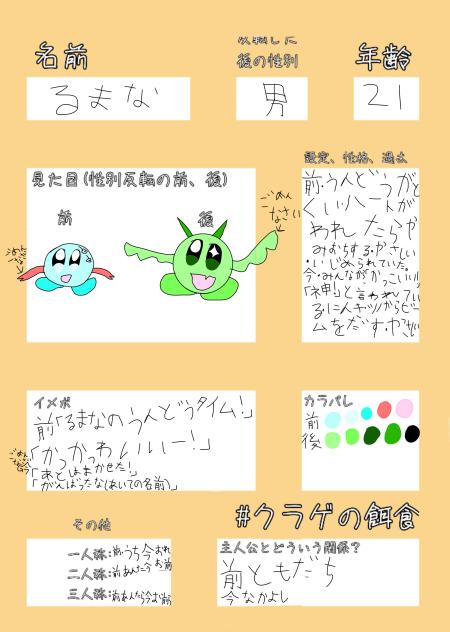 名前
後の性別
年齢
るまな
男
21
見た目(性別反転の前、後)
前
後
ごめん
なさい
設定、性格、過去
前:うんどうがと
くい、ハートが
われたらや
みおちする・やさしい
・いじめられていた。
今・みんながかっこいい
「神!」と言われてい
ムをだす・やさい
イメボ
前「るまなのうんどうタイム!」
「かっかっわいいー!」
「あとはまかせた!」
「がんばったな(あいての名前)」
カラパレ
前
後
その他
一人称:前:うち今:おれ
二人称:前あんた今お前
三人称:前あんたら今お前
#クラゲの餌食
主人公とどういう関係?
前ともだち
今なかよし